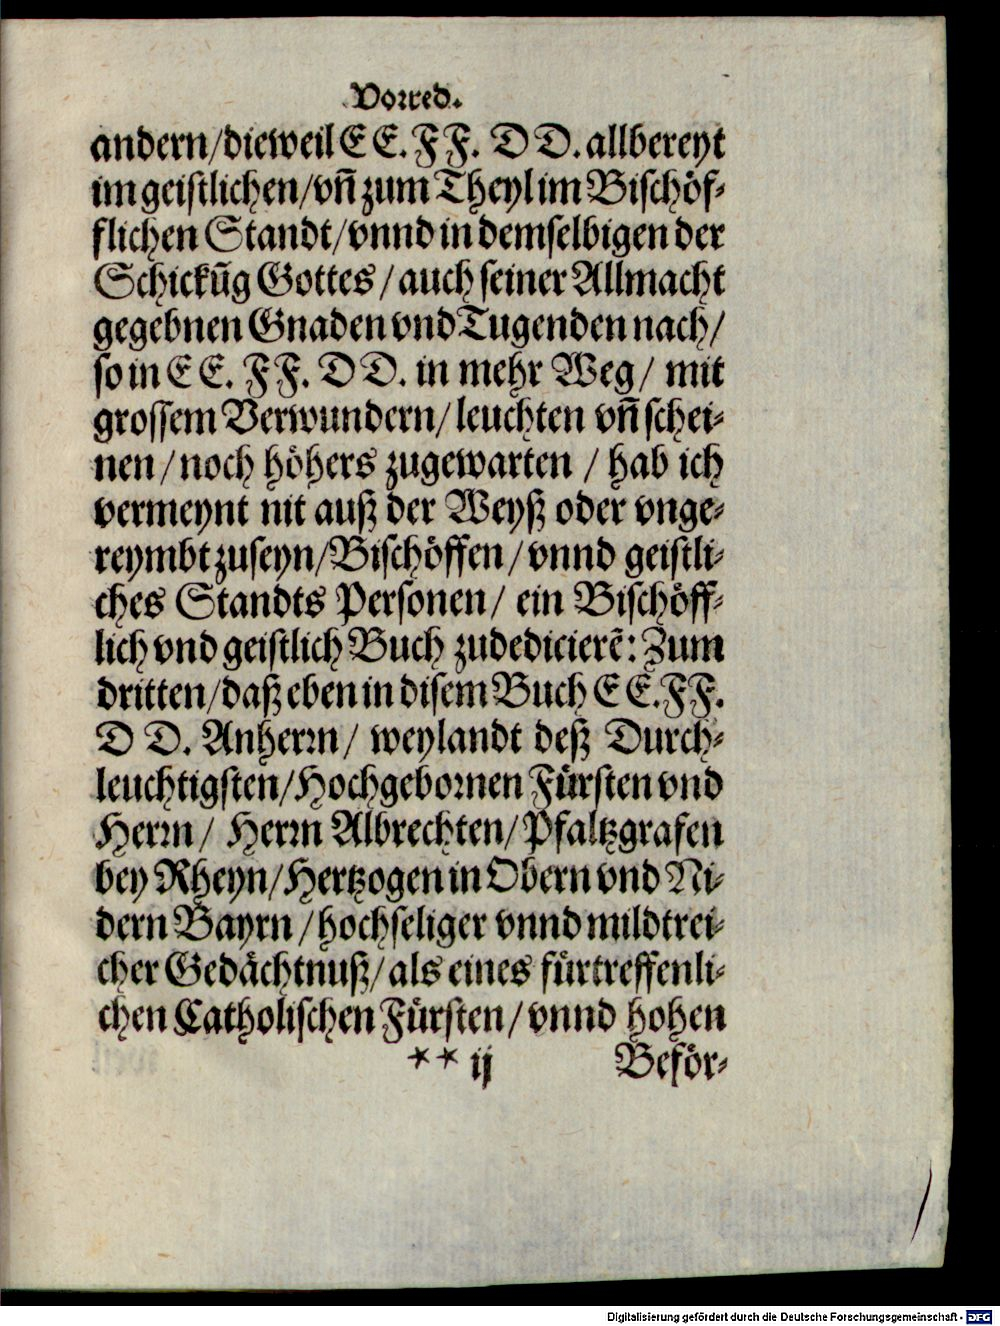 Vorred.
andern/dieweil E E. F F. D D. allbereyt
im geistlichen/vñ zum Theyl im Bischöf-
flichen Standt/vnnd in demselbigen der
Schickũg Gottes/auch seiner Allmacht
gegebnen Gnaden vnd Tugenden nach/
so in E E. F F. D D. in mehr Weg/ mit
grossem Verwundern/leuchten vñ schei-
nen/noch höhers zugewarten / hab ich
vermeynt nit auß der Weyß oder vnge-
reymbt zuseyn/Bischöffen/vnnd geistli-
ches Standts Personen/ ein Bischöff-
lich vnd geistlich Buch zudedicierẽ: Zum
dritten/daß eben in disem Buch E E. F F.
D D. Anherrn/ weylandt deß Durch-
leuchtigsten/Hochgebornen Fürsten vnd
Herrn/ Herrn Albrechten/Pfaltzgrafen
bey Rheyn/Hertzogen in Obern vnd Ni-
dern Bayrn/hochseliger vnnd mildtrei-
cher Gedächtnuß/als eines fürtreffenli-
chen Catholischen Fürsten/vnnd hohen
** ij Beför-
Digitalisierung gefördert durch die Deutsche Forschungsgemeinschaft - DFG